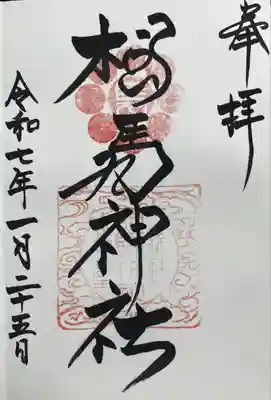 奉拝
相馬神社
令和七年一月二十五日